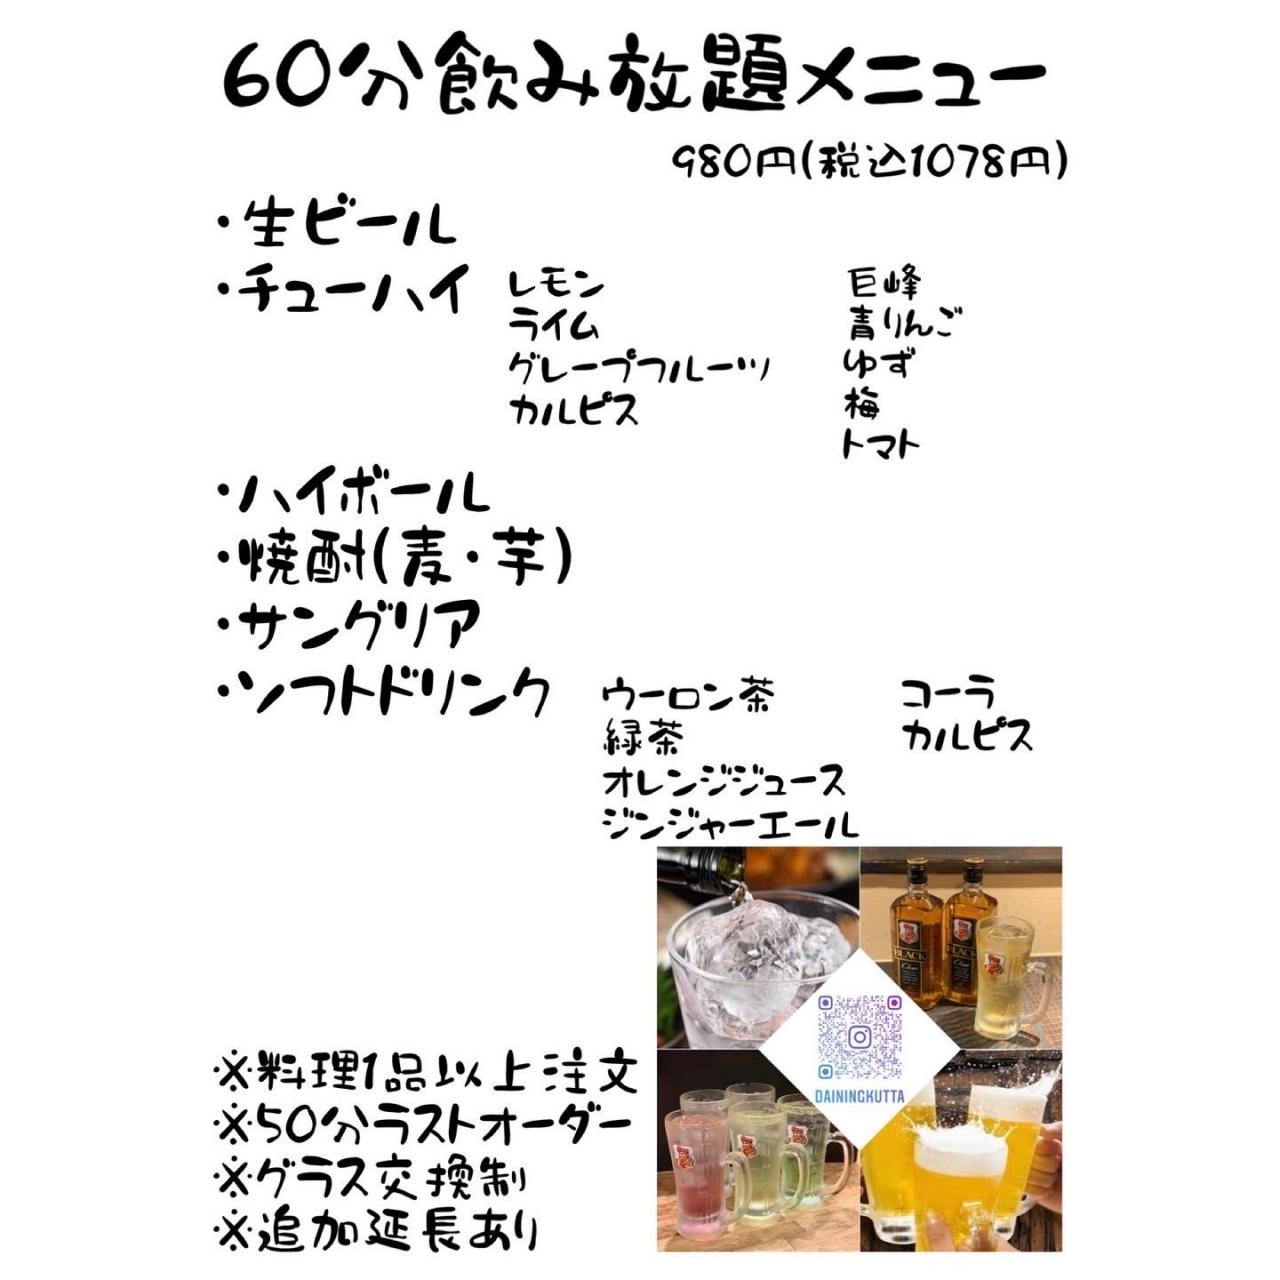 60分飲み放題メニュー
980円(税込1078円)
・生ビール
・チューハイ
レモン
ライム
グレープフルーツ
カルピス
巨峰
青りんご
ゆず
梅
トマト
・ハイボール
・焼酎(麦・芋)
・サングリア
・ソフトドリンク
ウーロン茶
緑茶
オレンジジュース
ジンジャーエール
コーラ
カルピス
※料理1品以上注文
※50分ラストオーダー
※グラス交換制
※追加延長あり
BLACK
Clear
BLACK
DAININGKUTTA